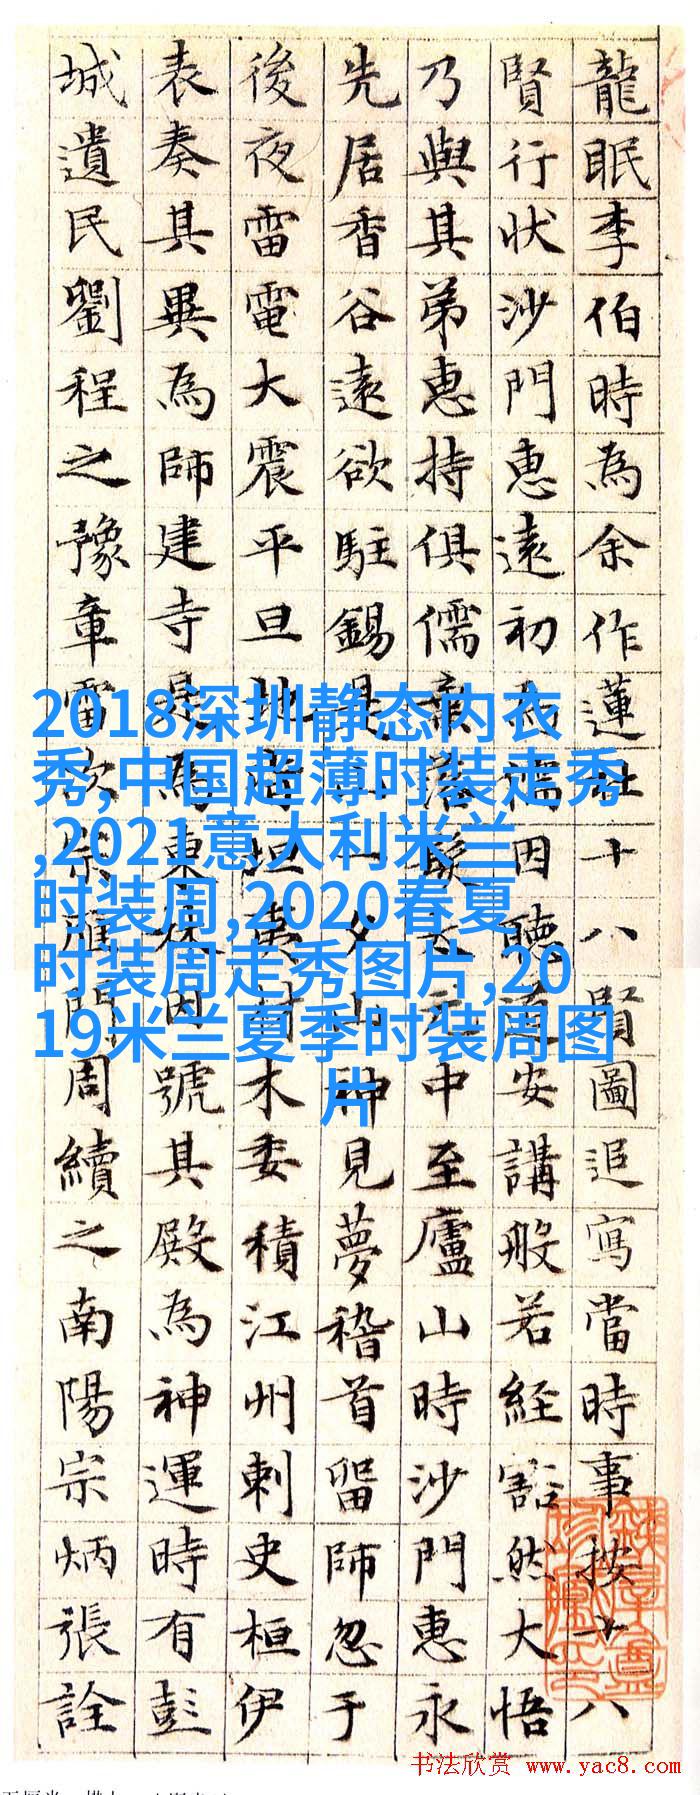 龍眠李伯時為余作蓮社十八賢圖追寫當時事按十八
賢行狀沙門惠遠初為儒因聽道安講般若經豁然大悟
乃與其弟惠持俱儒髮太元中至廬山時沙門惠永
先居香谷遠欲駐錫是山一夕山神見夢稽首留師忽于
後夜雷電大震平旦地皆坦夷材木委積江州刺史桓伊
表奏其異為師建寺是為東林因號其殿為神運時有彭
城遺民劉程之豫章雷次宗雁門周續之南陽宗炳張詮
2018深圳静态内衣
秀,中国超薄时装走秀
,2021意大利米兰
时装周,2020春夏
时装周走秀图片,20
19米兰夏季时装周图
片
书法欣赏 www.yac8.com